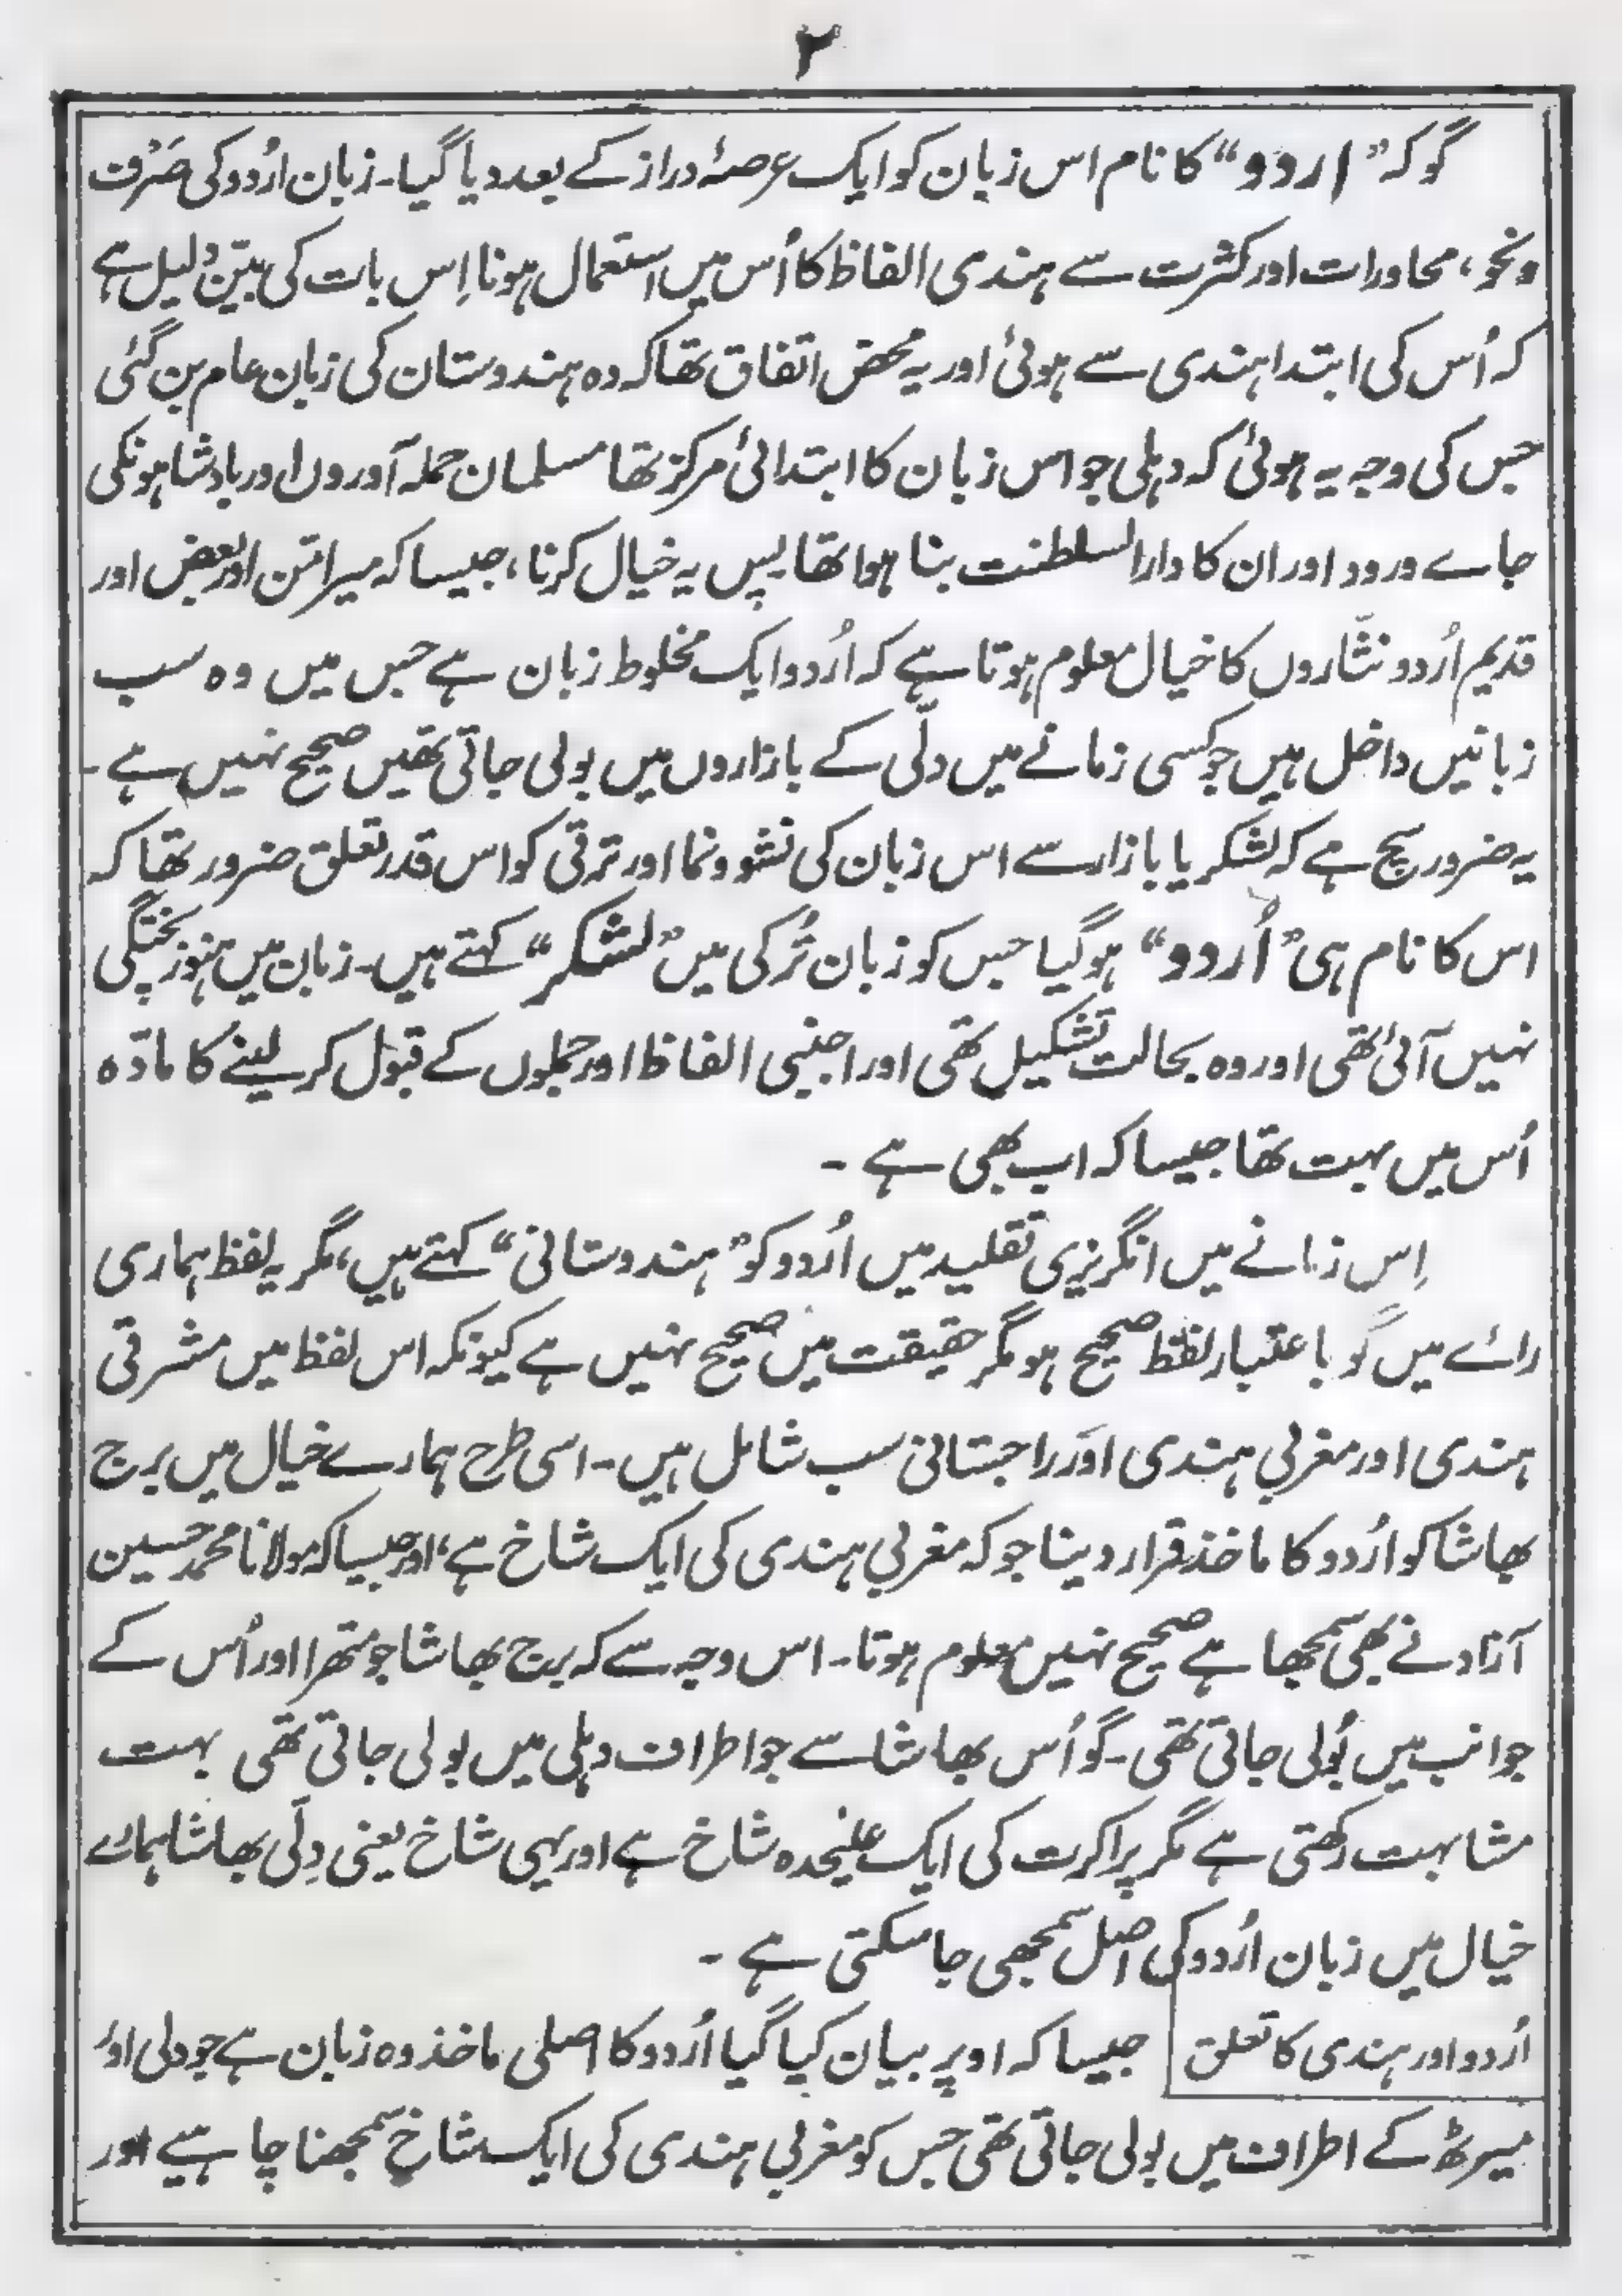 ۲
گو کہ "اردو" کا نام اس زبان کو ایک عرصۂ دراز کے بعد دیا گیا۔ زبان اُردو کی صَرْف
و نحو، محاورات اور کثرت سے ہندی الفاظ کا اُس میں استعمال ہونا اِس بات کی بیّن دلیل ہے
کہ اُس کی ابتدا ہندی سے ہوئی اور یہ محض اتفاق تھا کہ وہ ہندوستان کی زبان عام بن گئی
جس کی وجہ یہ ہوئی کہ دہلی جو اس زبان کا ابتدائی مرکز تھا مسلمان حملہ آوروں اور بادشاہونکی
جاے ورود اور ان کا دارالسلطنت بنا ہوا تھا پس یہ خیال کرنا، جیسا کہ میرامّن اور بعض اور
قدیم اُردو نثّاروں کا خیال معلوم ہوتا ہے کہ اُردو ایک مخلوط زبان ہے جس میں وہ سب
زبانیں داخل ہیں جو کسی زمانے میں دلّی کے بازاروں میں بولی جاتی تھیں صحیح نہیں ہے۔
یہ ضرور سچ ہے کہ لشکر یا بازار سے اس زبان کی نشو و نما اور ترقی کو اس قدر تعلق ضرور تھا کہ
اس کا نام ہی "اُردو" ہو گیا جس کو زبان تُرکی میں "لشکر" کہتے ہیں۔ زبان میں ہنوز پختگی
نہیں آئی تھی اور وہ بحالت تشکیل تھی اور اجنبی الفاظ اور جملوں کے قبول کر لینے کا مادّہ
اُس میں بہت تھا جیسا کہ اب بھی ہے ۔
اِس زمانے میں انگریزی تقلید میں اُردو کو "ہندوستانی" کہتے ہیں، مگر یہ لفظ ہماری
رائے میں گو باعتبار لفظ صحیح ہو مگر حقیقت میں صحیح نہیں ہے کیونکہ اس لفظ میں مشرقی
ہندی اور مغربی ہندی اور راجستانی سب شامل ہیں۔ اسی طرح ہمارے خیال میں برج
بھاشا کو اُردو کا ماخذ قرار دینا جو کہ مغربی ہندی کی ایک شاخ ہے، اور جیسا کہ مولانا محمد حسین
آزاد نے بھی سمجھا ہے صحیح نہیں معلوم ہوتا۔ اس وجہ سے کہ برج بھاشا جو متھرا اور اُس کے
جوانب میں بولی جاتی تھی۔ گو اُس بھاشا سے جو اطراف دہلی میں بولی جاتی تھی بہت
مشابہت رکھتی ہے مگر پراکرت کی ایک علیٰحدہ شاخ ہے اور یہی شاخ یعنی دِلّی بھاشا ہمارے
خیال میں زبان اُردو کی اصل سمجھی جا سکتی ہے ۔
اُردو اور ہندی کا تعلق جیسا کہ اوپر بیان کیا گیا اُردو کا اصلی ماخذ وہ زبان ہے جو دلی اور
میرٹھ کے اطراف میں بولی جاتی تھی جس کو مغربی ہندی کی ایک شاخ سمجھنا چاہیے اور